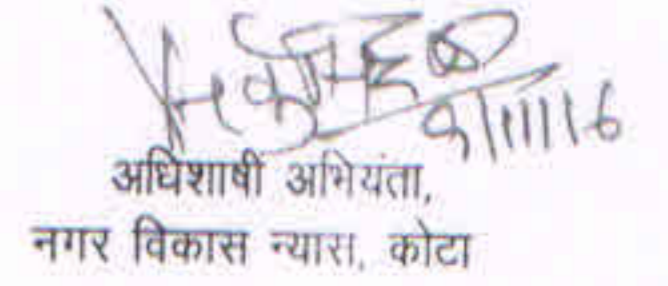 9/11/16
अधिशाषी अभियंता,
नगर विकास न्यास, कोटा